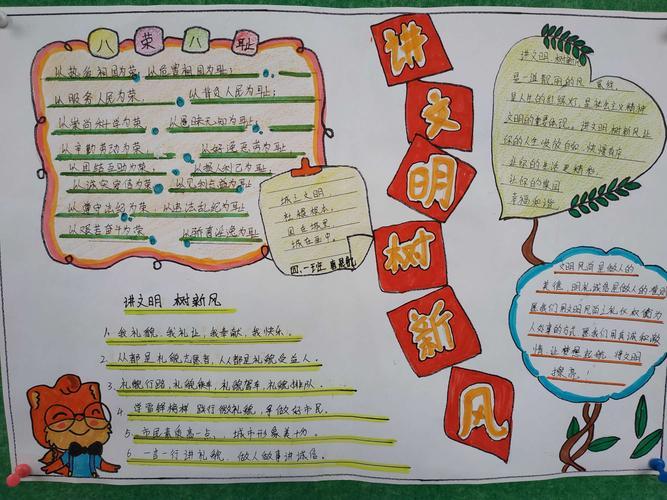 八荣八耻
以热爱祖国为荣，以危害祖国为耻；
以服务人民为荣，以背负人民为耻；
以崇尚科学为荣，以愚昧无知为耻；
以辛勤劳动为荣，以好逸恶劳为耻；
以团结互助为荣，以损人利己为耻；
以诚实守信为荣，以见利忘义为耻；
以遵守法纪为荣，以违法乱纪为耻；
以艰苦奋斗为荣，以骄奢淫逸为耻
城之文明
社稷根本，
国在城里
城在画中。
四.一班
讲文明树新风
讲文明 树新风
1、我礼貌，我礼让，我奉献，我快乐。
2、人人都是礼貌志愿者，人人都是礼貌受益人。
3、礼貌行路，礼貌乘车，礼貌驾车，礼貌排队
4、学雷锋榜样 践行微礼貌，争做好市民
5、市民素质高一点， 城市形象美十分。
6、一言一行讲礼貌， 做人做事讲诚信。
讲文明 树新风
是一道靓丽的风景线
是人生的红绿灯，是社会主义精神
文明的重要体现，讲文明树新风让
你的生活更精彩
让你的家园
幸福和谐
文明风尚是做人的
美德，明礼诚信是做人的准则
愿我们用文明风尚之礼仪衡量为
人处事的方式 愿我们用真诚和激
情，让梦想起航，将文明
擦亮。